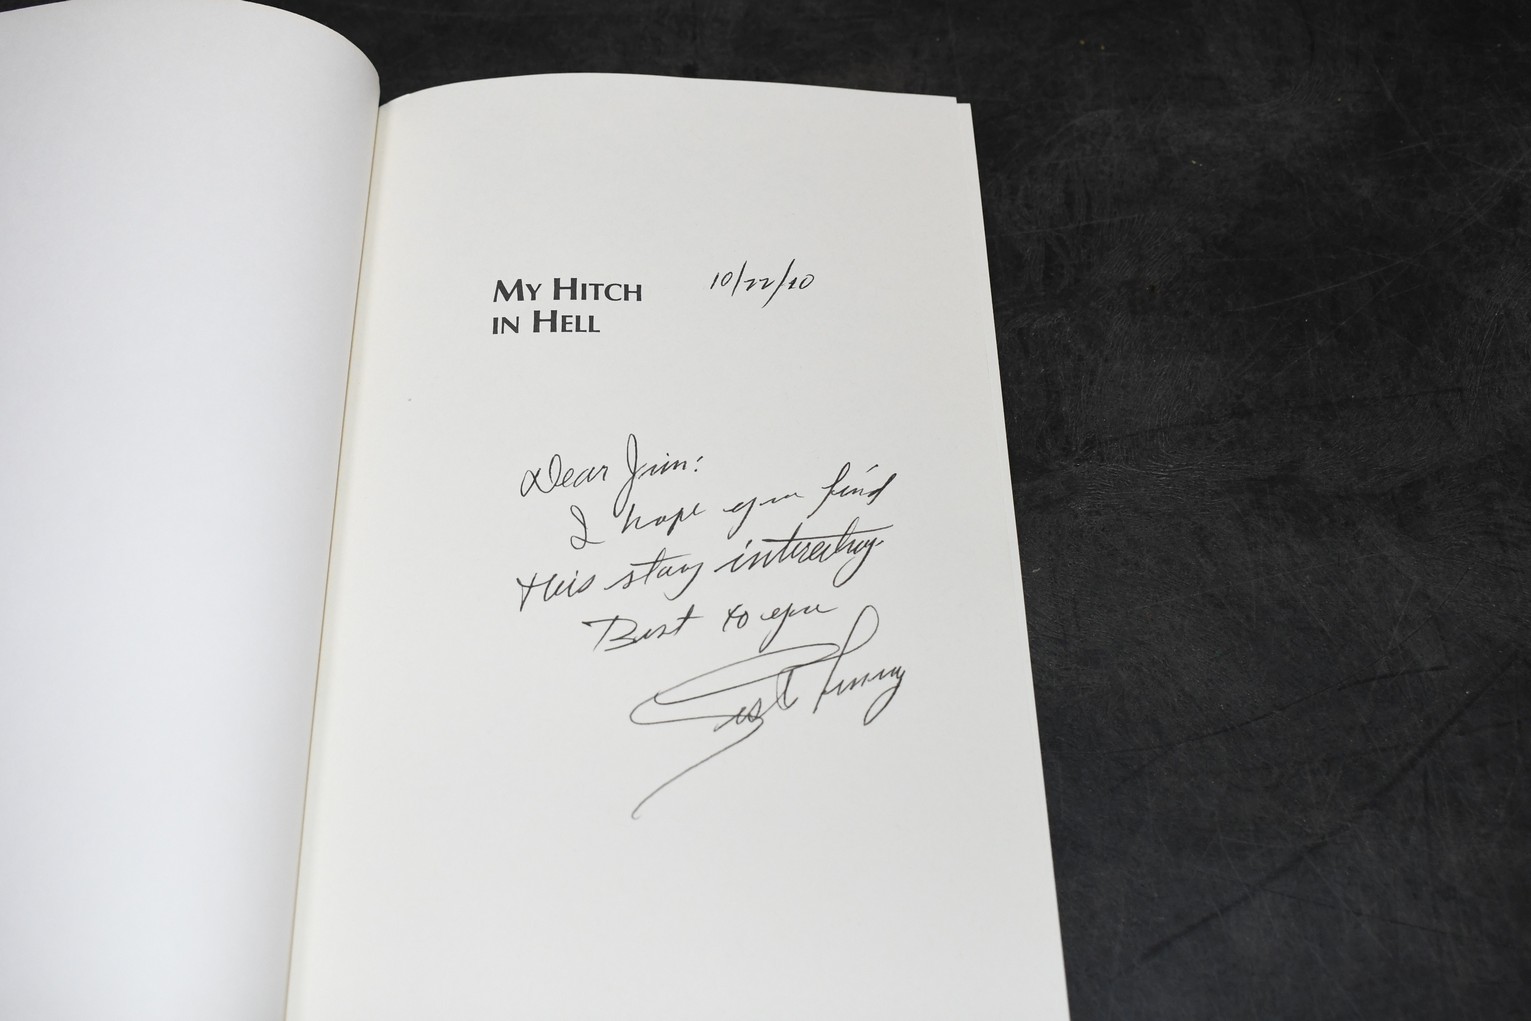 MY HITCH
IN HELL
10/22/10
Dear Jim:
I hope you find
this story interesting.
Best to you
Lester Tenney